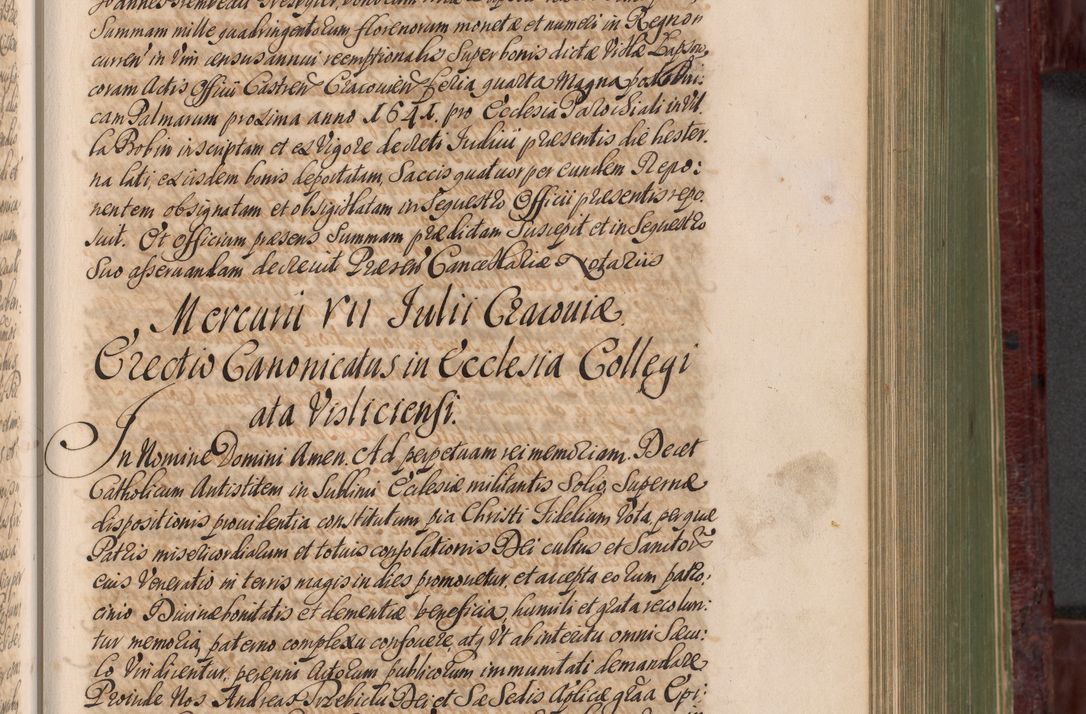 Summam mille quadringentorum florenorum monetæ et numeri in Regno
curren in Vim census annui reemptionalis Super bonis dictæ Villæ
coram Actis Officii Castren Cracovien feria quarta Magna post Domi:
cam Palmarum proxima anno 1641. pro Ecclesia Parochiali in Vil
la Robin inscriptam et ex Vigore decreti Iudicii præsentis die hester
na lati, ex iisdem bonis deportatam, Saccis quatuor per eundem Repo:
nentem obsignatam et obsigillatam in Sequestro Officii præsentis repo
suit. Et Officium præsens Summam prædictam Suscepit et in Sequestro
Suo asservandam decrevit Præsen Cancellariæ Notarius
Mercurii VII Iulii Cracoviæ.
Erectio Canonicatus in Ecclesia Collegi
ata Visliciensi.
In Nomine Domini Amen. Ad perpetuam rei memoriam. Decet
Catholicum Antistitem in Sublimi Ecclesiæ militantis Solio, Supernæ
dispositionis providentia constitutum pia Christi Fidelium Vota, per quæ
Patris misericordiarum et totius consolationis Dei cultus et Sanctor
eius Veneratio in terris magis in dies promovetur, et accepta eorum patro:
cinio Divinæ bonitatis et clementiæ beneficia, humili et grata recolun:
tur memoria, paterno complexu confovere, atq Vt ab interitu omni Sæcu:
lo Vindicentur, perenni Actorum publicorum immunitati demandare,
Proinde Nos Andreas Trzebicki Dei et Sæ Sedis Aplicæ graa Epi: